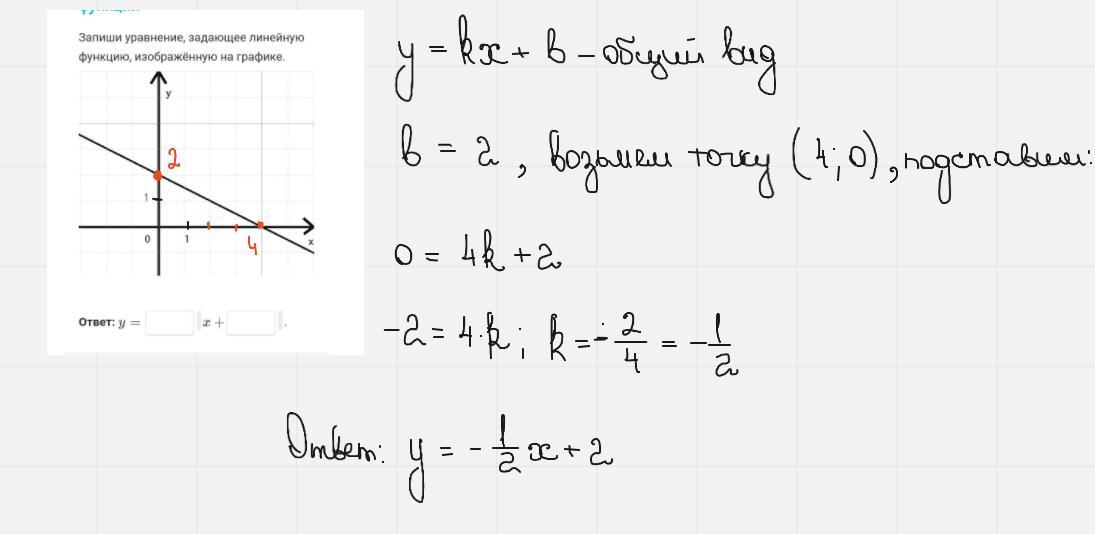 функции
Запиши уравнение, задающее линейную
функцию, изображённую на графике.
y
2
1
0
1
4
x
Ответ: y = x + .
y = kx + b - общий вид
b = 2, возьмем точку (4; 0), подставим:
0 = 4k + 2
-2 = 4·k; k = -2/4 = -1/2
Ответ: y = -1/2 x + 2